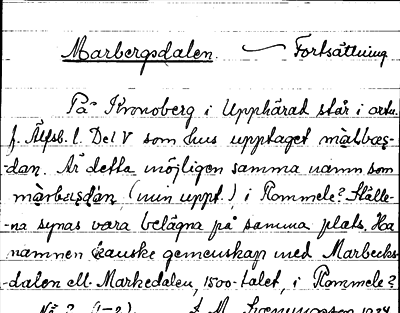 Marbergsdalen. — Fortsättning
På Kronoberg i Upphärad står i ortn.
f. Älfsb. l. Del V som hus upptaget målbæs-
dan. Är detta möjligen samma namn som
màrbæs̨dán (min uppt.) i Rommele? Ställe-
na synas vara belägna på samma plats. Ha
namnen kanske gemenskap med Marbecks-
dalen ell. Markedalen, 1500-talet, i Rommele?